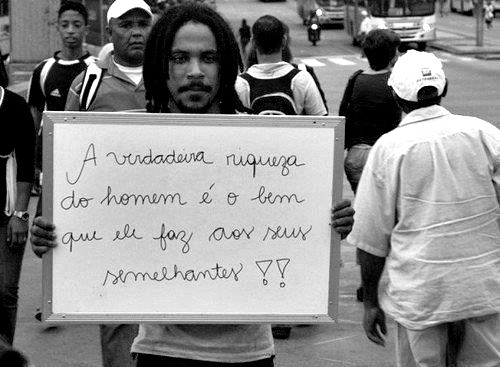 A verdadeira riqueza
do homem é o bem
que ele faz aos seus
semelhantes !!